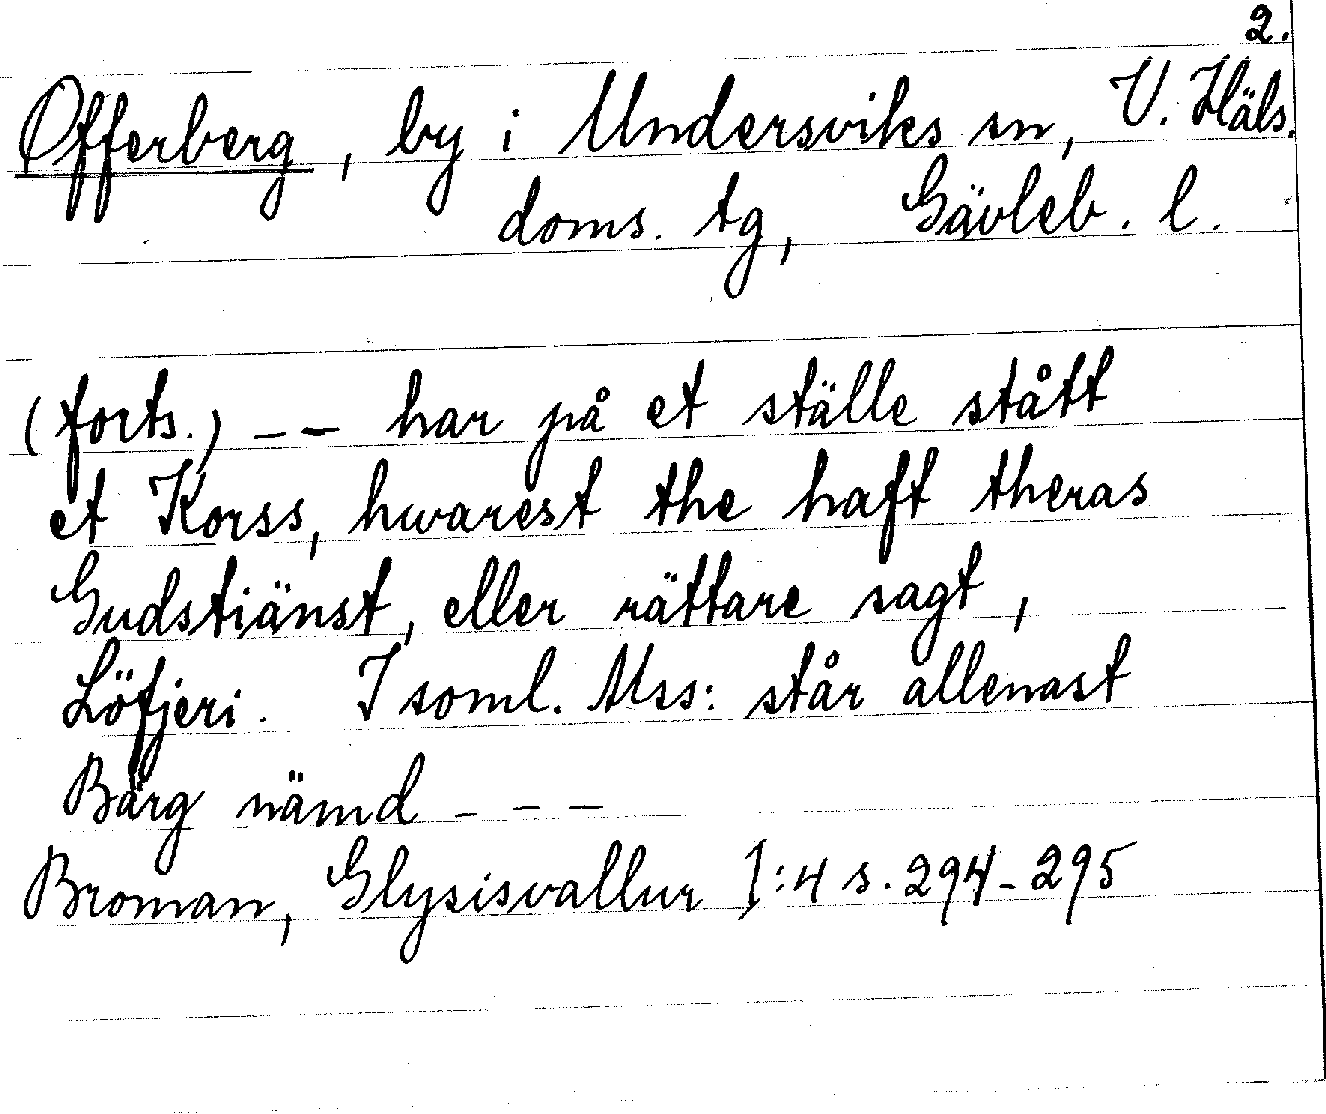 2.
Offerberg, by i Undersviks sn, V. Häls.
doms. tg, Gävleb. l.
(forts.) -- har på et ställe stått
et Korss, hwarest the haft theras
Gudstiänst, eller rättare sagt,
Löfjeri. I soml. Mss: står allenast
Bärg nämd - - -
Broman, Glysisvallur I:4 s. 294-295